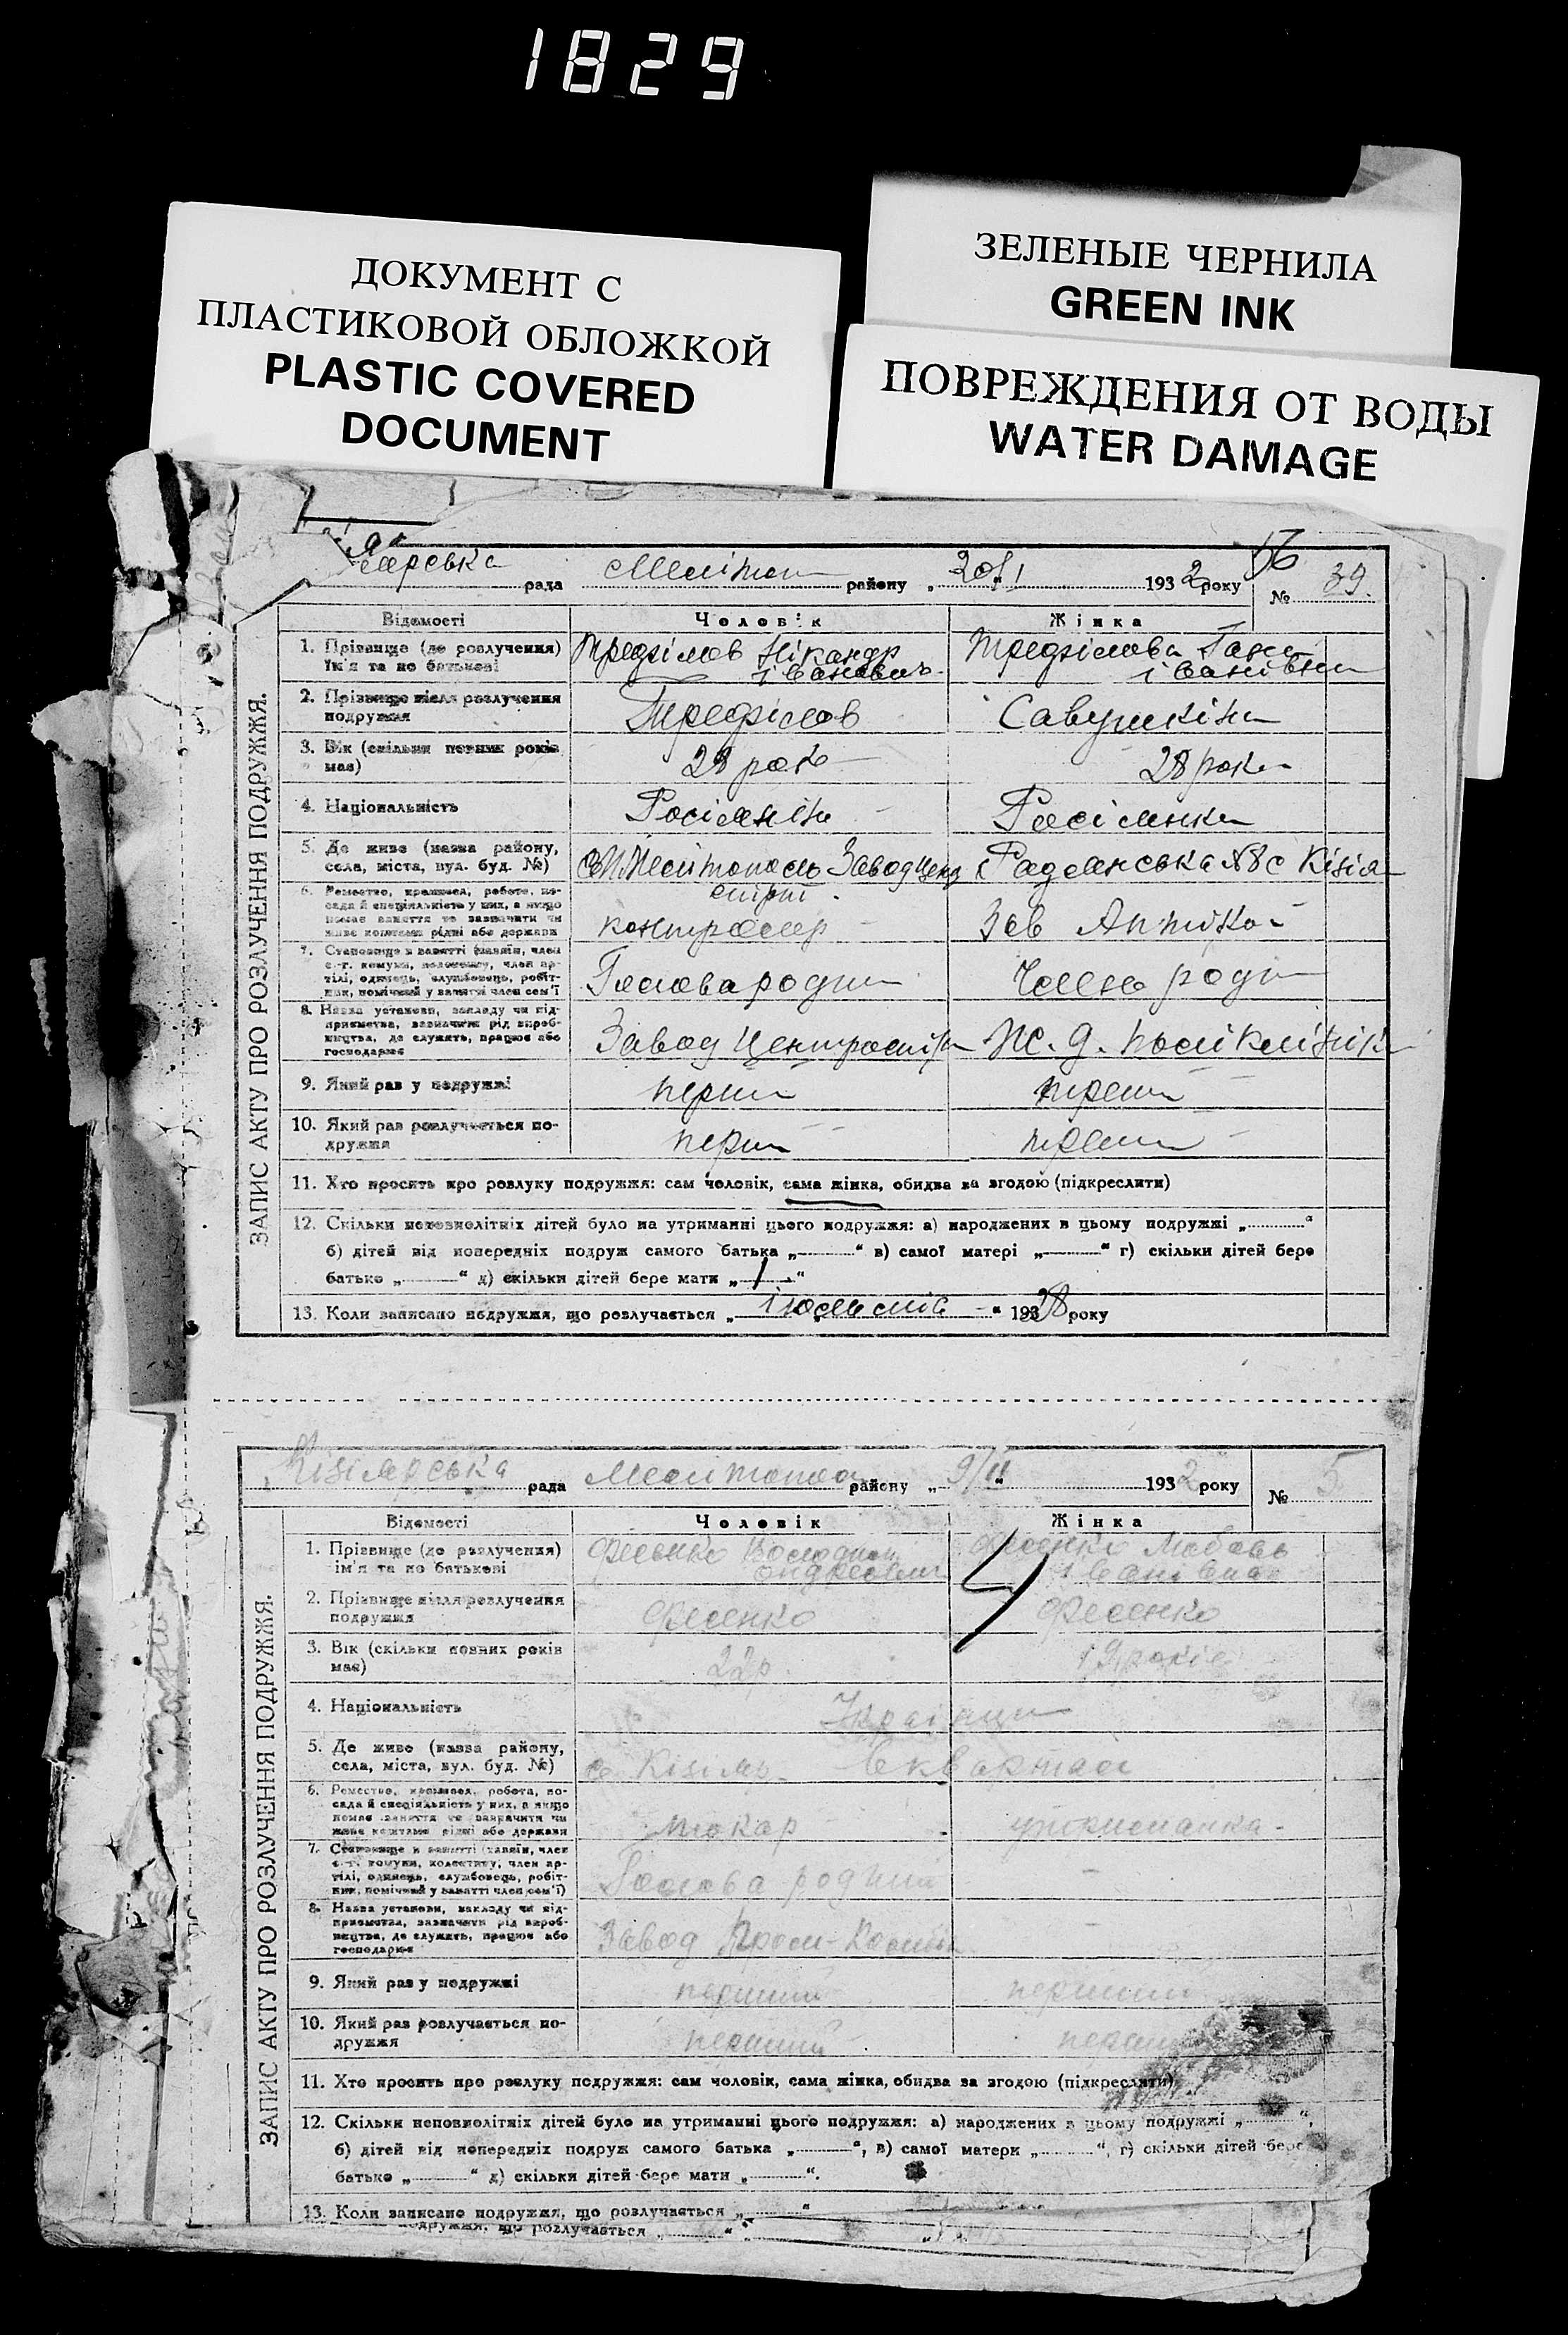 1829
ДОКУМЕНТ С
ПЛАСТИКОВОЙ ОБЛОЖКОЙ
PLASTIC COVERED
DOCUMENT
ЗЕЛЕНЫЕ ЧЕРНИЛА
GREEN INK
ПОВРЕЖДЕНИЯ ОТ ВОДЫ
WATER DAMAGE
ЗАПИС АКТУ ПРО РОЗЛУЧЕННЯ ПОДРУЖЖЯ.
рада району 1932 року № 39.
Відомості Чоловік Жінка
1. Прізвище (до розлучення) ім'я та по батькові
Нікандр Івановичъ
Івановна
2. Прізвище після розлучення подружжя
Савушкіна
3. Вік (скільки повних років має)
28 рок 28 роки
4. Національність
Росіянін Росіянка
5. Де живе (назва району, села, міста, вул. буд. №)
Мелітополь Завод Радянська №8 с Кізіяр
6. Ремество, промисел, робота, посада й спеціяльність у них, а якщо немає заняття то зазначити чи живе коштами рідні або держави
контролер Зав Аптекой
7. Становище в занятті (хазяїн, член с.-г. комуни, колективу, член артілі, одинець, службовець, робітник, помічний у занятті член сем'ї
Голова родин Член роди
8. Назва установи, закладу чи підприємства, зазначити рід виробництва, де служить, працює або господарює
Завод Ж.д. поліклініка
9. Який раз у подружжі
перш перш
10. Який раз розлучається подружжя
перш перш
11. Хто просить про розлуку подружжя: сам чоловік, сама жінка, обидва за згодою (підкреслити)
12. Скільки неповнолітніх дітей було на утриманні цього подружжя: а) народжених в цьому подружжі „ “
б) дітей від попередніх подруж самого батька „ “ в) самої матері „ “ г) скільки дітей бере
батько „ “ д) скільки дітей бере мати „ 1 “
13. Коли записано подружжя, що розлучається „ “ 1928 року
ЗАПИС АКТУ ПРО РОЗЛУЧЕННЯ ПОДРУЖЖЯ.
Кізіярська рада Мелітопол району „ 9/II “ 1932 року № 5
Відомості Чоловік Жінка
1. Прізвище (до розлучення) ім'я та по батькові
Фесенко Володим Фесенко Любовь
Івановна
2. Прізвище після розлучення подружжя
Фесенко Фесенко
3. Вік (скільки повних років має)
22р. 19 років
4. Національність
Українці
5. Де живе (назва району, села, міста, вул. буд. №)
с Кізіяр 6 квартал
6. Ремество, промисел, робота, посада й спеціяльність у них, а якщо немає заняття то зазначити чи живе коштами рідні або держави
токар утриманка
7. Становище в занятті (хазяїн, член с.-г. комуни, колективу, член артілі, одинець, службовець, робітник, помічний у занятті член сем'ї)
Голова родини -
8. Назва установи, закладу чи підприємства, зазначити рід виробництва, де служить, працює або господарює
Завод -
9. Який раз у подружжі
перший перший
10. Який раз розлучається подружжя
перший перши
11. Хто просить про розлуку подружжя: сам чоловік, сама жінка, обидва за згодою (підкреслити)
12. Скільки неповнолітніх дітей було на утриманні цього подружжя: а) народжених в цьому подружжі „ “,
б) дітей від попередніх подруж самого батька „ “, в) самої матери „ “, г) скільки дітей бере
батько „ “ д) скільки дітей бере мати „ “.
13. Коли записано подружжя, що розлучається „ “
подружжя, що розлучається „ “